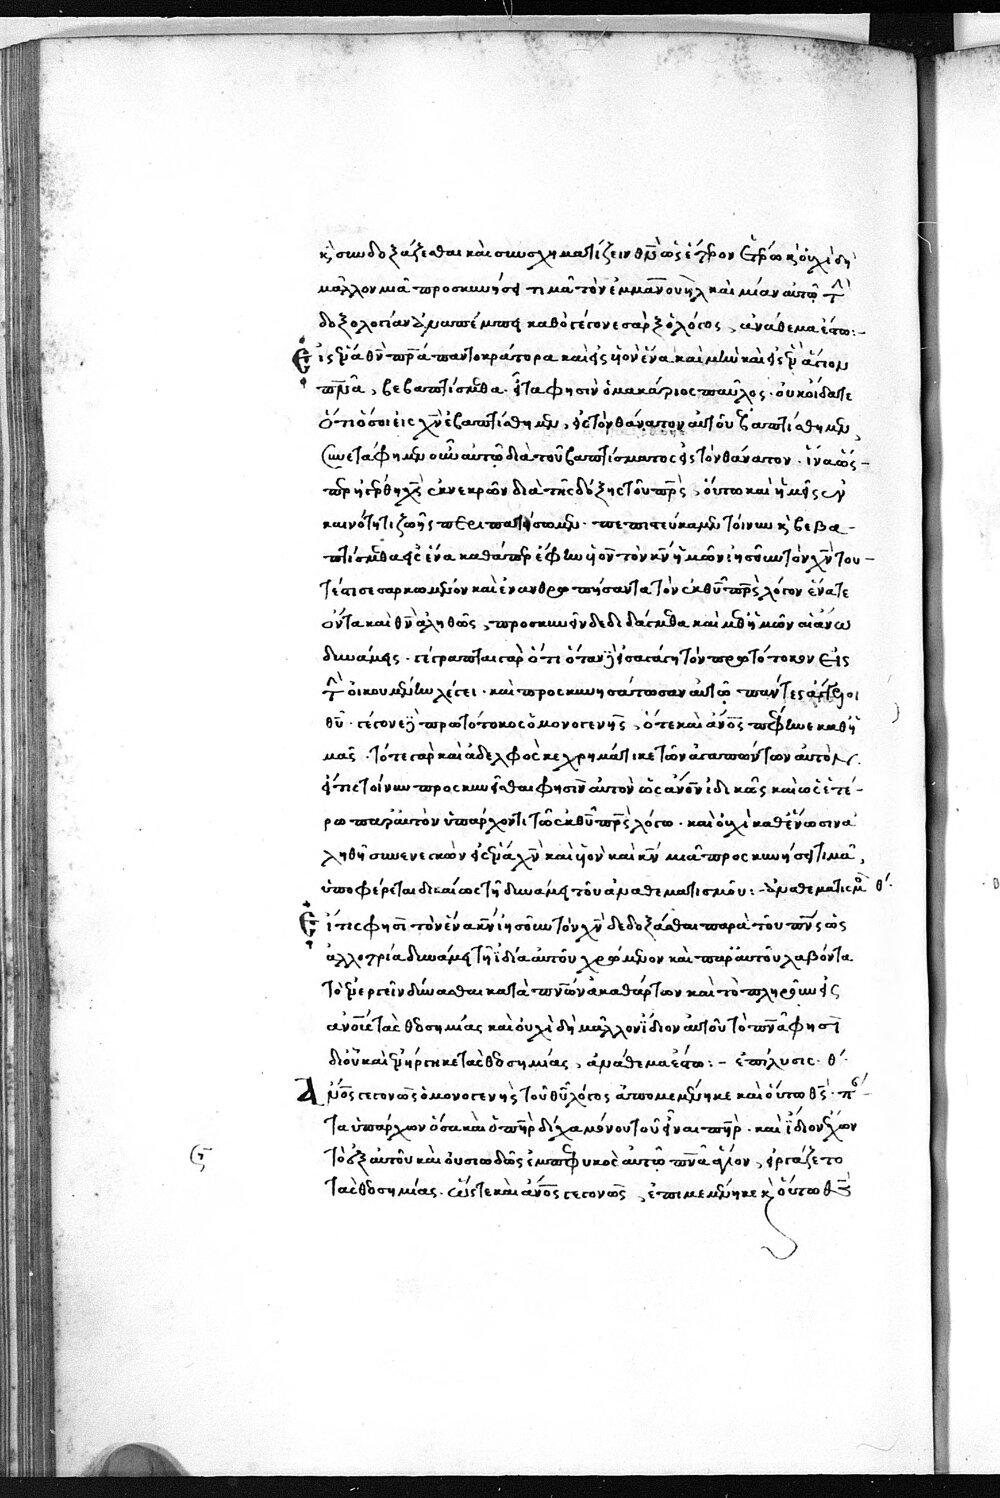 κ συνδοξάζεσθαι καὶ συσχηματίζειν θν ὡς ἕτερον ἑτέρω κ οὐχὶ δὴ
μᾶλλον μιᾶ προσκυνήσει τιμᾶ τὸν ἐμμανουὴλ καὶ μίαν αὐτῶ τὴν
δοξολογίαν ἀναπέμπει καθὸ γέγονε σαρξ ὁ λόγος, ἀνάθεμα ἔστω:-
Εἰς ἕνα θν πρα παντοκράτορα καὶ εἰς υἱὸν ἕνα καὶ μὴν καὶ εἰς ἓν ἅγιον
πνα, βεβαπτίσμεθα. εἶτα φησὶν ὁ μακάριος παῦλος. οὐκ οἴδατε
ὅτι ὅσοι εἰς χν ἐβαπτίσθημεν, εἰς τὸν θάνατον αὐτοῦ ἐβαπτίσθημεν,
συνετάφημεν οὖν αὐτῶ διὰ τοῦ βαπτίσματος εἰς τὸν θάνατον. ἵνα ὡσ-
περ ἠγέρθη χς ἐκ νεκρῶν διὰ τῆς δόξης τοῦ πρς, οὕτω καὶ ἡμεῖς ἐν
καινότητι ζωῆς περιπατήσωμεν. πεπιστεύκαμεν τοίνυν κ βεβα-
πτίσμεθα εἰς ἕνα καθάπερ ἔφην υἱὸν τὸν κν ἡμῶν ιησοῦν τὸν χν του-
τέστι σεσαρκωμένον καὶ ἐνανθρωπήσαντα τὸν ἐκ θυ πρς λόγον ἕνα τε
ὄντα καὶ θν ἀληθῶς, προσκυνεῖν δεδιδάγμεθα καὶ μεθ' ἡμῶν αἱ ἄνω
δυνάμεις. γέγραπται γὰρ ὅτι ὅταν εἰσαγάγη τὸν πρωτότοκον εἰς
τὴν οἰκουμένην λέγει. καὶ προσκυνησάτωσαν αὐτῶ πάντες ἄγγελοι
θυ. γέγονε δὲ πρωτότοκος ὁ μονογενὴς, ὅτε καὶ ἀνος πέφηνε καθ' ἡ
μᾶς. τότε γὰρ καὶ ἀδελφὸς κεχρημάτικε τῶν ἀγαπώντων αὐτὸν.
εἴ τις τοίνυν προσκυνεῖσθαι φησὶν αὐτὸν ὡς ἀνον ἰδικῶς καὶ ὡς ἑτέ-
ρω παρ' αὐτὸν ὑπάρχοντι τῶ ἐκ θυ πρς λόγω. καὶ οὐχὶ καθ' ἕνωσιν ἀ
ληθῆ συνενεγκὼν εἰς ἕνα χν καὶ υἱὸν καὶ κν μιᾶ προσκυνήσει τιμᾶ,
ὑποφέρεται δικαίως τῆ δυνάμει τοῦ ἀναθεματισμοῦ:- ἀναθεματισμὸς θ'.
Εἴ τις φησὶ τὸν ἕνα κν ιησοῦν τὸν χν δεδοξάσθαι παρὰ τοῦ πνς ὡς
ἀλλοτρία δυνάμει τῆ ἰδία αὐτοῦ χρώμενον καὶ παρ' αὐτοῦ λαβόντα
τὸ ἐνεργεῖν δύνασθαι κατὰ πνων ἀκαθάρτων καὶ τὸ πληροῦν εἰς
ανοις τὰς θεοσημίας καὶ οὐχὶ δὴ μᾶλλον ἴδιον αὐτοῦ τὸ πνα φησὶ
δι' οὗ καὶ ἐνήργηκε τὰς θεοσημίας, ἀνάθεμα ἔστω:- ἐπίλυσις. θ'.
Ανος γεγονὼς ὁ μονογενὴς τοῦ θυ λόγος ἀπομεμένηκε καὶ οὕτω θς. πάν-
τα ὑπάρχων ὅσα καὶ ὁ πηρ δίχα μόνου τοῦ εἶναι πηρ. καὶ ἴδιον ἔχων
τὸ ἐξ αὐτοῦ καὶ οὐσιωδῶς ἐμπεφυκὸς αὐτῶ πνα ἅγιον, εἰργάζετο
τὰς θεοσημίας. ὥστε καὶ ἀνος γεγονὼς, ἐπιμεμένηκε κ οὕτω θς